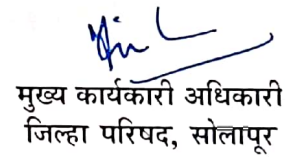 मुख्य कार्यकारी अधिकारी
जिल्हा परिषद, सोलापूर